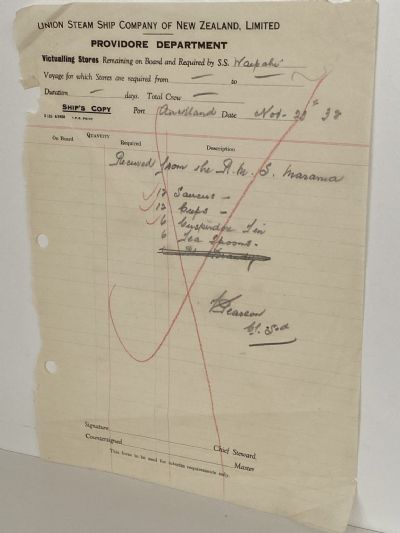 UNION STEAM SHIP COMPANY OF NEW ZEALAND, LIMITED
PROVIDORE DEPARTMENT
Victualling Stores Remaining on Board and Required by S.S. Waipahi
Voyage for which Stores are required from — to —
Duration — days. Total Crew —
SHIP'S COPY Port Auckland Date Nov. 23rd 38
QUANTITY
On Board Required Description
Received from the R.M.S. Marama
12 Saucers –
12 Cups –
6 Cuspidor Tin
6 Tea Spoons.
Brandy
Pearson
Ch. Stwd
Signature Chief Steward
Countersigned Master
This form to be used for interim requirements only.